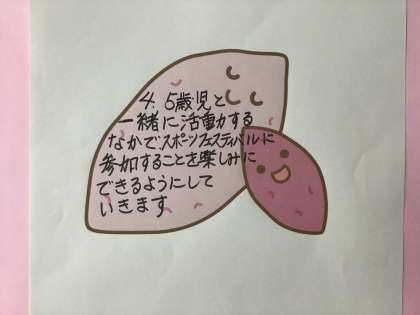 4、5歳児と
一緒に活動する
なかでスポーツフェスティバルに
参加することを楽しみに
できるようにして
いきます